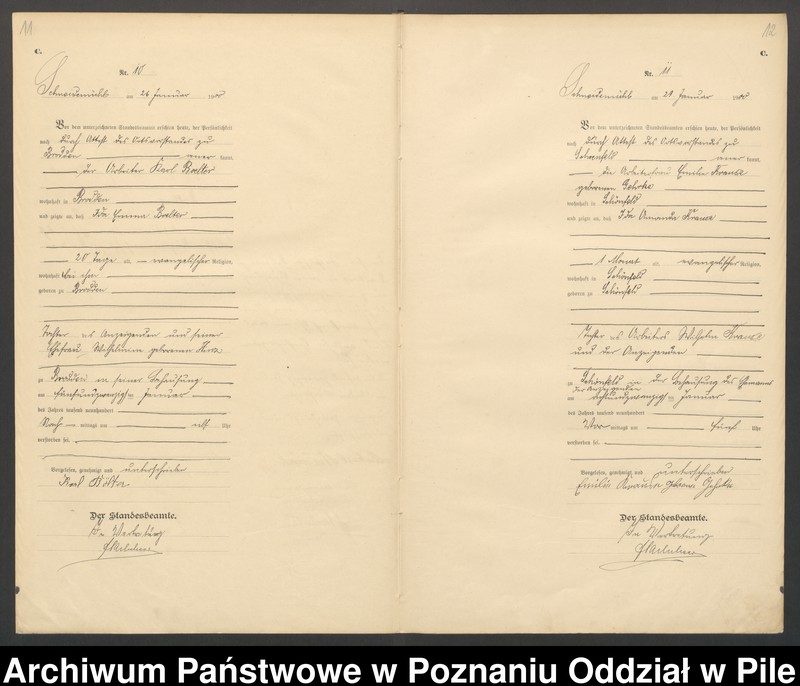 11
C.
Nr. 10
Schneidemühl am 26 Januar 1900
Vor dem unterzeichneten Standesbeamten erschien heute, der Persönlichkeit
nach durch Attest des Ortsvorstandes zu
kannt,
der Arbeiter Karl
wohnhaft in
und zeigte an, daß Ida Emma
20 Tage alt, evangelischer Religion,
wohnhaft bei ihm
geboren zu
Tochter des Anzeigenden und seiner
Ehefrau Wilhelmine geborenen
zu in seiner Behausung
am fünfundzwanzigsten Januar
des Jahres tausend neunhundert
Nach mittags um acht Uhr
verstorben sei.
Vorgelesen, genehmigt und unterschrieben
Karl
Der Standesbeamte.
In Vertretung
12
C.
Nr. 11
Schneidemühl am 29 Januar 1900
Vor dem unterzeichneten Standesbeamten erschien heute, der Persönlichkeit
nach durch Attest des Ortsvorstandes zu
Schönfeld kannt,
die Arbeiterfrau Emilie Krause
geborenen Gehrke
wohnhaft in Schönfeld
und zeigte an, daß Ida Amanda Krause
1 Monat alt, evangelischer Religion,
wohnhaft in Schönfeld
geboren zu Schönfeld
Tochter des Arbeiters Wilhelm Krause
und der Anzeigenden
zu Schönfeld in der Behausung des
der Anzeigenden
am achtundzwanzigsten Januar
des Jahres tausend neunhundert
Vor mittags um fünf Uhr
verstorben sei.
Vorgelesen, genehmigt und unterschrieben
Emilie Krause geborene Gehrke
Der Standesbeamte.
In Vertretung
Archiwum Państwowe w Poznaniu Oddział w Pile